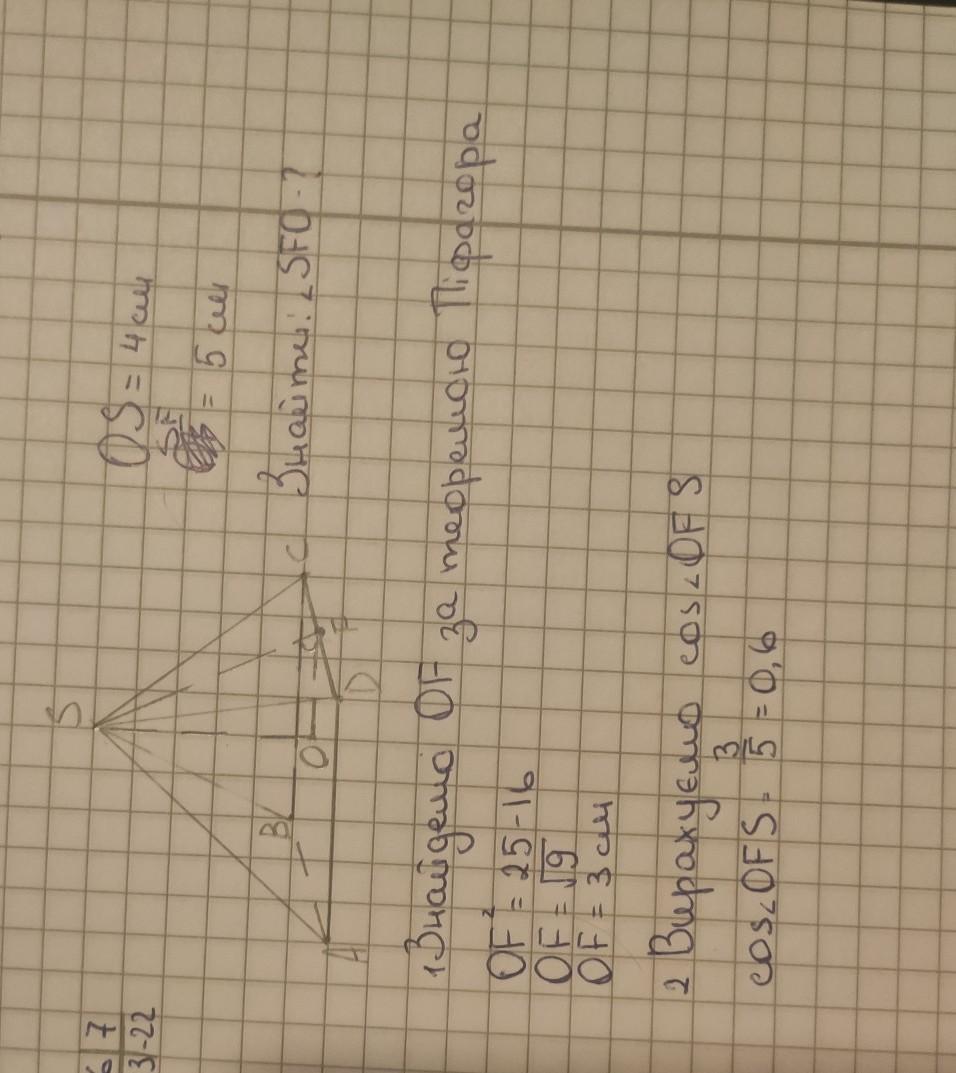 6 7
3-22
S
B
O
C
F
A
D
OS = 4 см
SF
= 5 см
Знайти: ∠SFO - ?
1 Знайдемо OF за теоремою Піфагора
OF² = 25-16
OF = √9
OF = 3 см
2 Вирахуємо cos∠OFS
cos∠OFS = 3/5 = 0,6